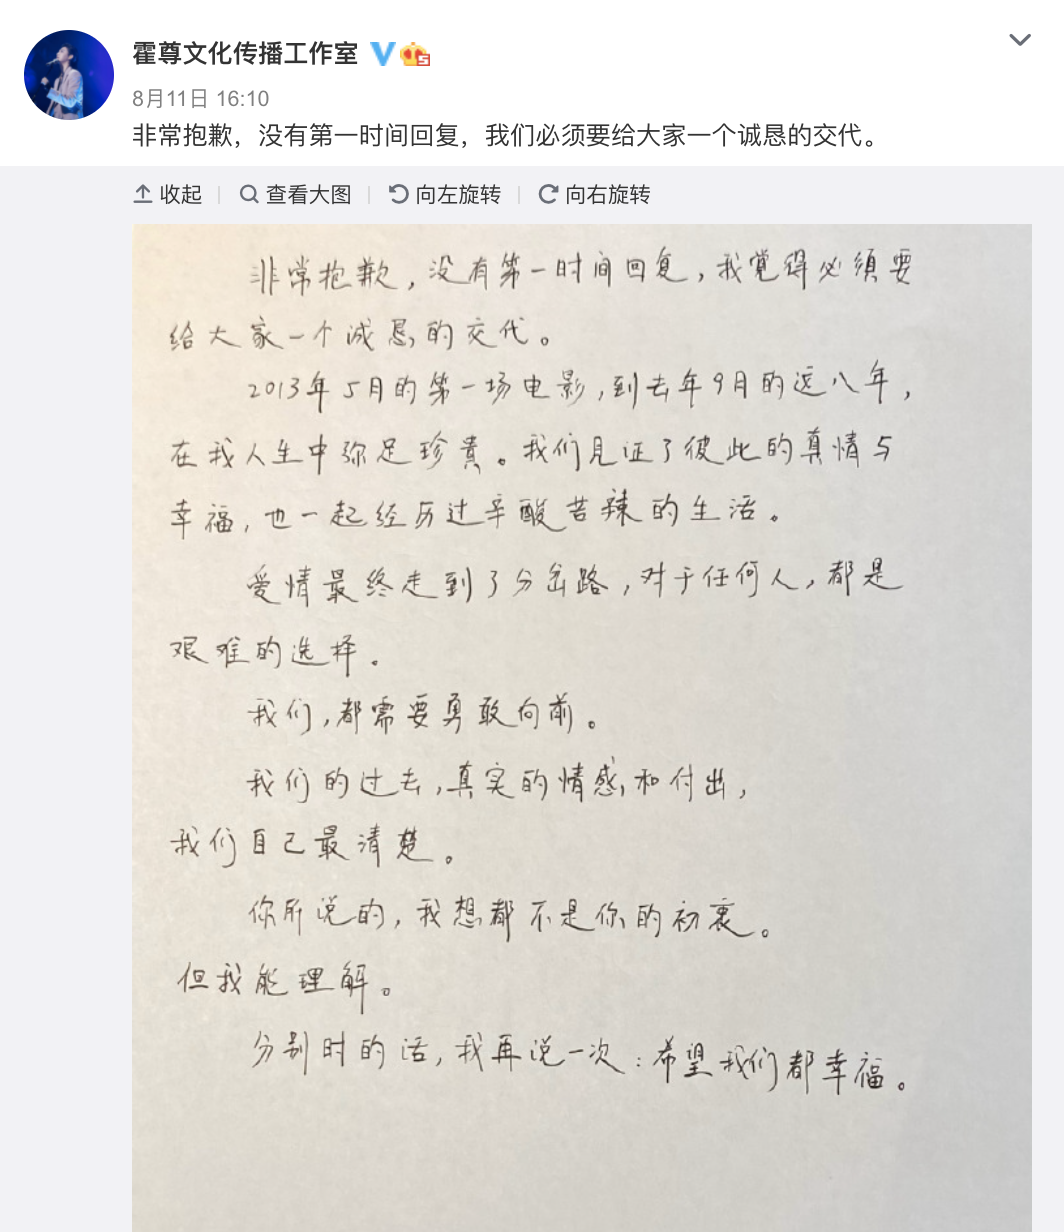 霍尊文化传播工作室
8月11日 16:10
非常抱歉，没有第一时间回复，我们必须要给大家一个诚恳的交代。
收起
查看大图
向左旋转
向右旋转
非常抱歉，没有第一时间回复，我觉得必须要
给大家一个诚恳的交代。
2013年5月的第一场电影，到去年9月的这八年，
在我人生中弥足珍贵。我们见证了彼此的真情与
幸福，也一起经历过辛酸苦辣的生活。
爱情最终走到了分岔路，对于任何人，都是
艰难的选择。
我们，都需要勇敢向前。
我们的过去，真实的情感和付出，
我们自己最清楚。
你所说的，我想都不是你的初衷。
但我能理解。
分别时的话，我再说一次：希望我们都幸福。